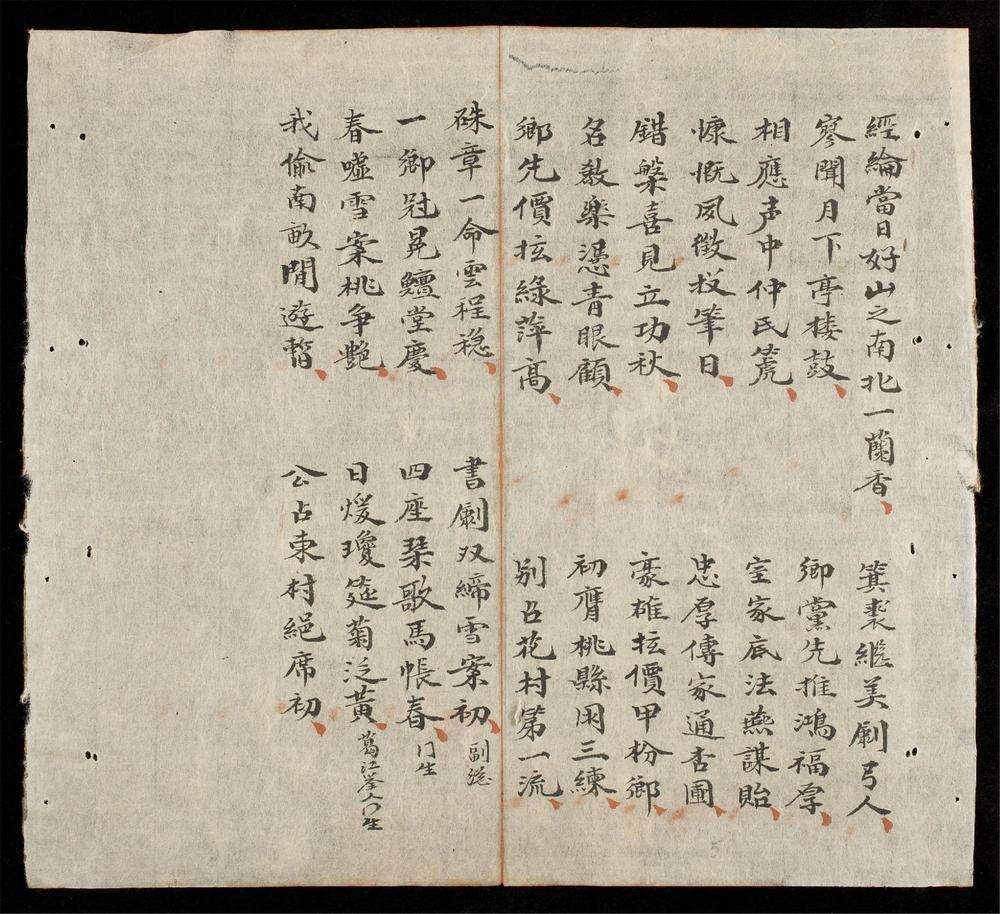 經綸當日好山之南北一蘭香 箕裘繼美劇弓人
寥聞月下亭棲鼓 鄉黨先推鴻福厚
相應声中仲氏篪 室家底法燕謀貽
慷慨夙徵投筆日 忠厚傳家通杏圃
錯槃喜見立功秋 豪雄抎價甲枌鄉
名教樂憑青眼顧 初膺桃縣困三練
鄉先價抎綠萍高 别占花村第一流
硃章一命雲程穏 書劇双締雪案初 副總
一鄉冠冕鱣堂慶 四座琹歌馬帳春 门生
春嘘雪案桃争艶 日煖瓊筵菊泛黃 葛江峯门生
我偷南畝閒遊暂 公占東村絕席初
5